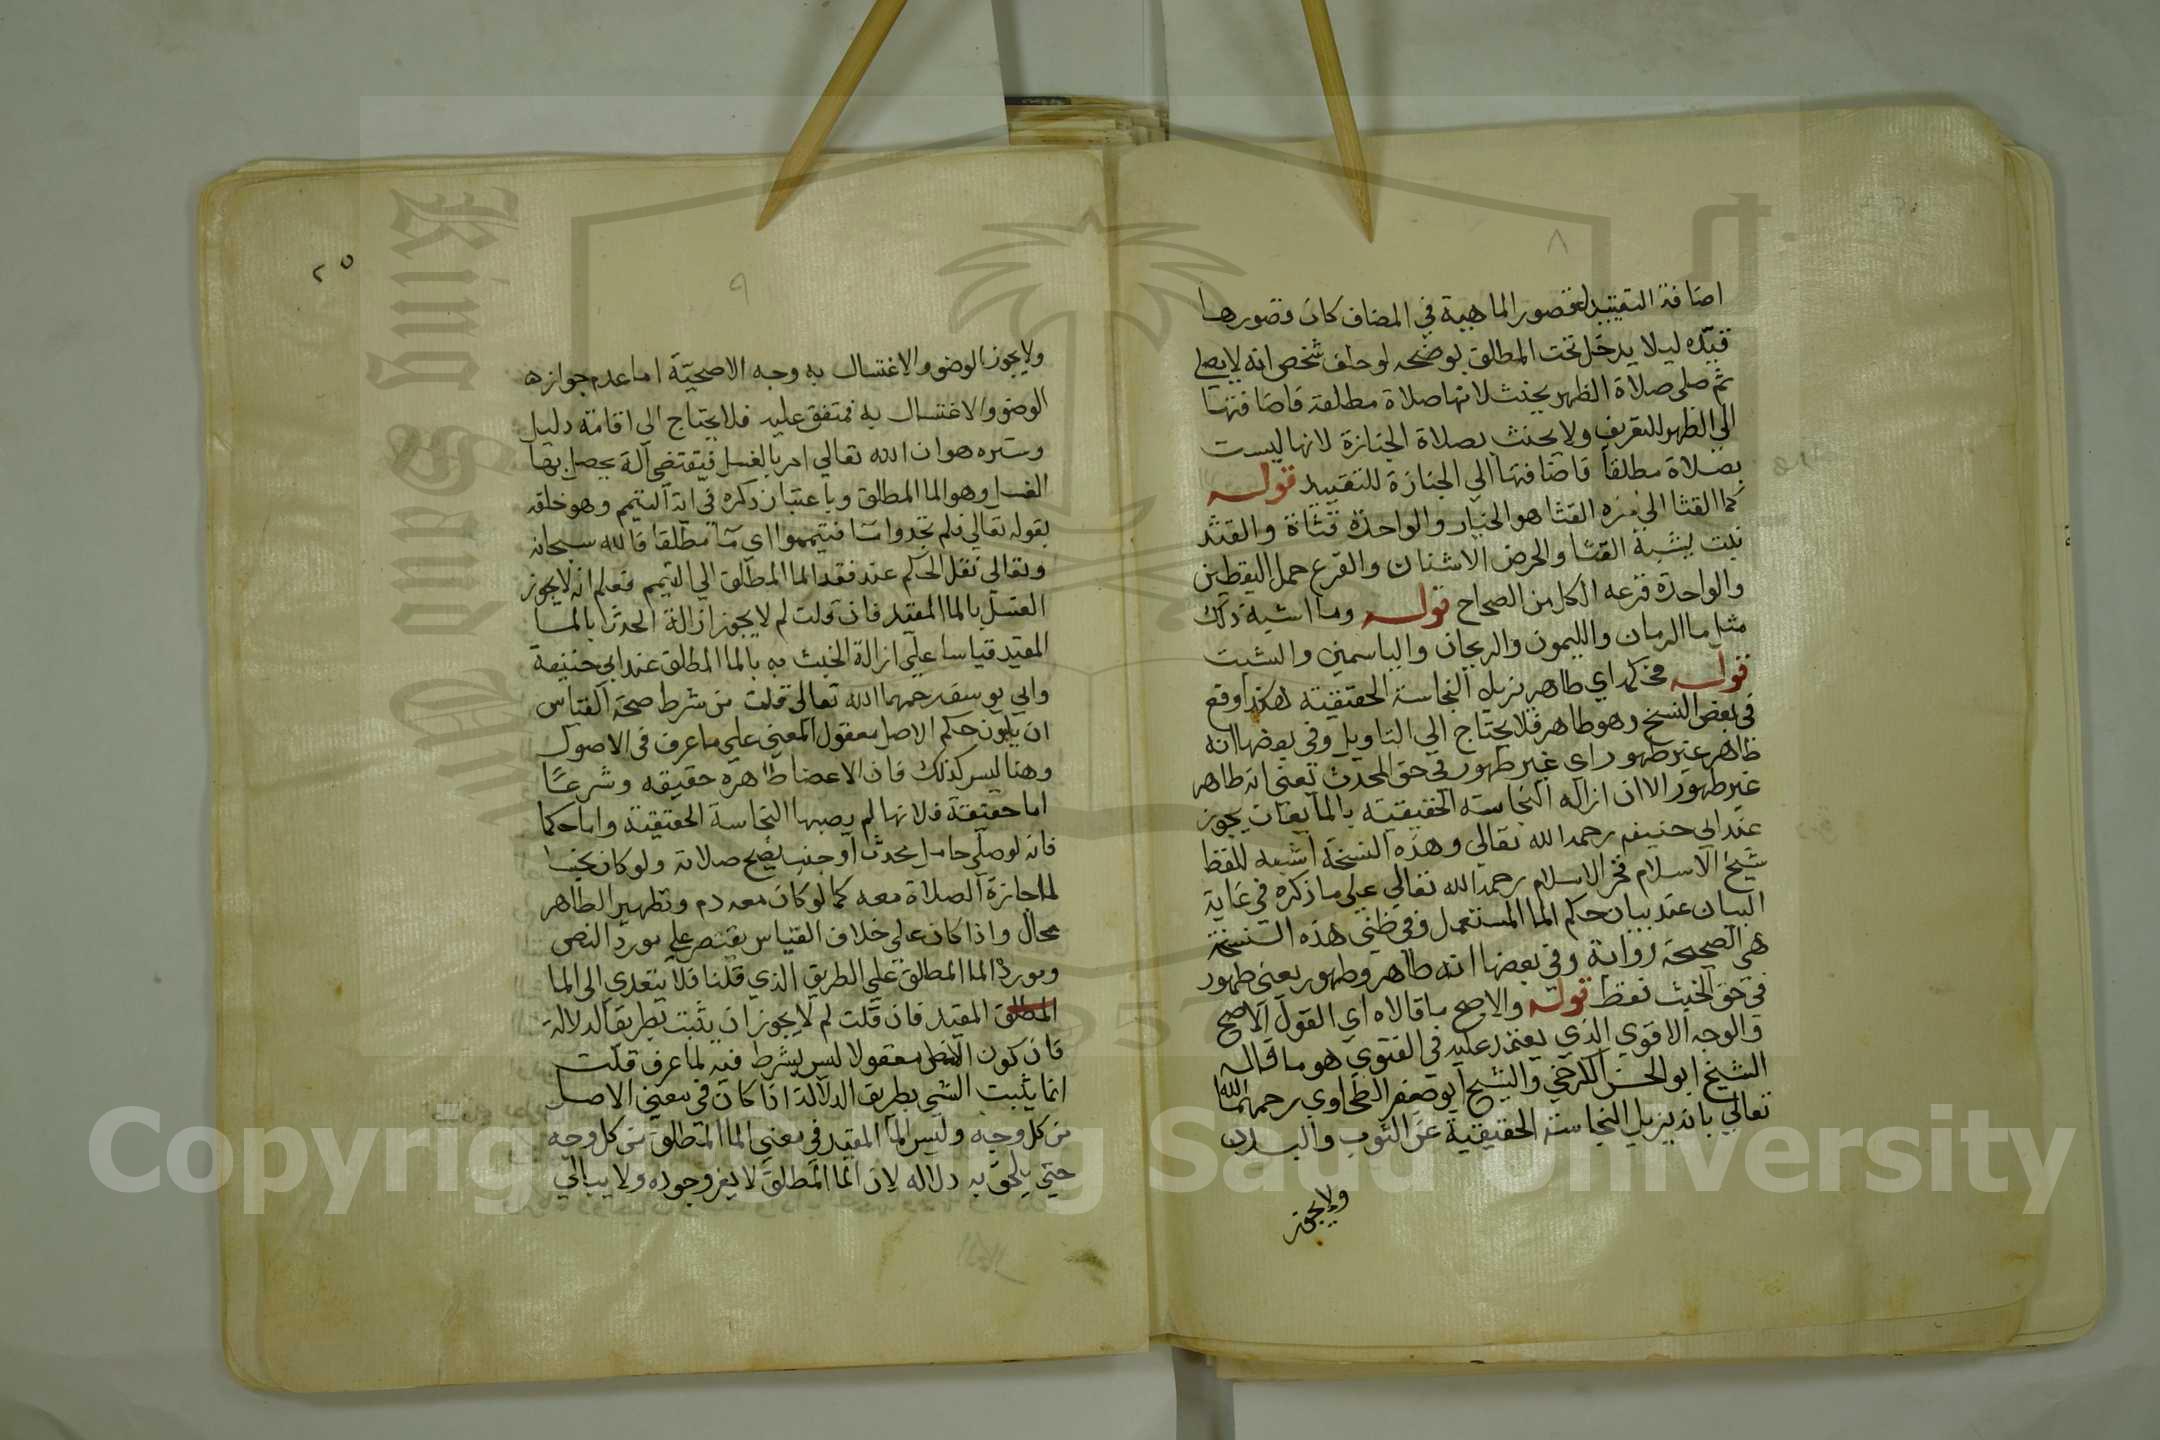 ٨
اضافة التقييد لقصور الماهية في المضاف كان قصورها
قيده ليلا يدخل تحت المطلق يوضحه لو حلف شخص انه لا يصلي
ثم صلى صلاة الظهر يحنث لانها صلاة مطلقة فاضافتها
الى الظهر للتعريف ولا يحنث بصلاة الجنازة لانها ليست
بصلاة مطلقا فاضافتها الي الجنازة للتقييد قوله
كما القثا الي اخره القثا هو الخيار والواحدة قثاة والقثد
نبت يشبه القثا والحرض الاشنان والقرع حمل اليقطين
والواحدة قرعه الكل من الصحاح قوله وما اشبه ذلك
مثل ما الرمان والليمون والريحان والياسمين والشبت
قوله فحكمه اي طاهر يزيل النجاسة الحقيقية هكذا وقع
في بعض النسخ وهو طاهر فلا يحتاج الي التاويل وفي بعضها انه
طاهر غير طهور اي غير طهور في حق المحدث يعني انه طاهر
غير طهور الا ان ازالة النجاسة الحقيقية بالمايعات يجوز
عند ابي حنيفه رحمه الله تعالي وهذه النسخة اشبه للفظ
شيخ الاسلام فخر الاسلام رحمه الله تعالي علي ما ذكره في غاية
البيان عند بيان حكم الما المستعمل وفي ظني هذه النسخة
هي الصحيحة رواية وفي بعضها انه طاهر وطهور يعني طهور
في حق الخبث فقط قوله والاصح ما قالاه اي القول الاصح
والوجه الاقوي الذي يعتمد عليه في الفتوي هو ما قاله
الشيخ ابو الحسن الكرخي والشيخ ابو جعفر الطحاوي رحمهما الله
تعالي بانه يزيل النجاسة الحقيقية عن الثوب والبدن
ولا يجوز
٢٥
٩
ولا يجوز الوضو والاغتسال به وجه الاصحية اما عدم جوازه
الوضو والاغتسال به فمتفق عليه فلا يحتاج الى اقامة دليل
وستره هو ان الله تعالي امر بالغسل فيقتضي آلة يحصل بها
الغسل وهو الما المطلق وباعتبار ذكره في اية التيمم وهو خلقه
بقوله تعالي فلم تجدوا ما فتيمموا اي ما مطلقا فالله سبحانه
وتعالي نقل الحكم عند فقد الما المطلق الي التيمم فعلم انه لا يجوز
الغسل بالما المقيد فان قلت لم لا يجوز ازالة الحدث بالما
المقيد قياسا علي ازالة الخبث به بالما المطلق عند ابي حنيفة
وابي يوسف رحمهما الله تعالى قلت من شرط صحة القياس
ان يكون حكم الاصل معقول المعني علي ما عرف في الاصول
وهنا ليس كذلك فان الاعضا طاهرة حقيقه وشرعا
اما حقيقة فلانها لم يصبها النجاسة الحقيقية واما حكما
فانه لو صلي حامل محدث او جنب يصح صلاته ولو كان نجسا
لما جازة الصلاة معه كما لو كان معه دم وتطهير الطاهر
محال واذا كان علي خلاف القياس يقتصر علي مورد النص
ومورده الما المطلق علي الطريق الذي قلنا فلا يتعدي الي الما
المطلق المقيد فان قلت لم لا يجوز ان يثبت بطريق الدلالة
فان كون الاصل معقولا ليس بشرط فيه لما عرف قلت
انما يثبت الشي بطريق الدلالة اذا كان في معني الاصل
من كل وجه وليس الما المقيد في معني الما المطلق من كل وجه
حتى يلحق به دلاله لان الما المطلق لا يعز وجوده ولا يبالي
Copyright © King Saud University
1957